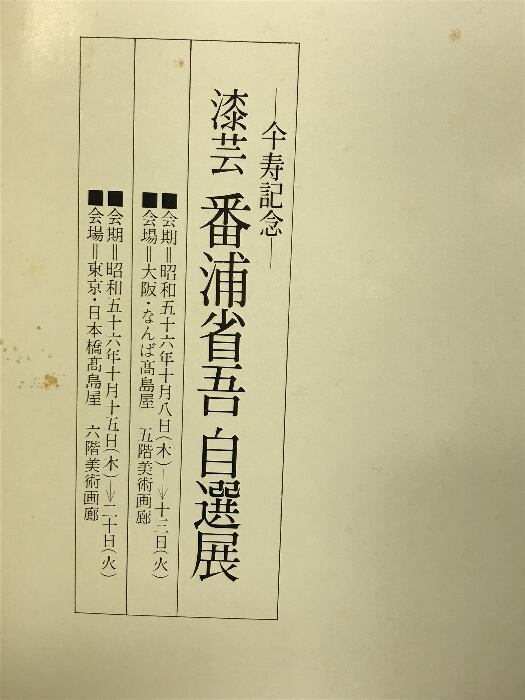 ―伞寿記念―
漆芸 番浦省吾 自選展
■会期＝昭和五十六年十月八日(木)―→十三日(火)
■会場＝大阪・なんば髙島屋 五階美術画廊
■会期＝昭和五十六年十月十五日(木)→二十日(火)
■会場＝東京・日本橋髙島屋 六階美術画廊